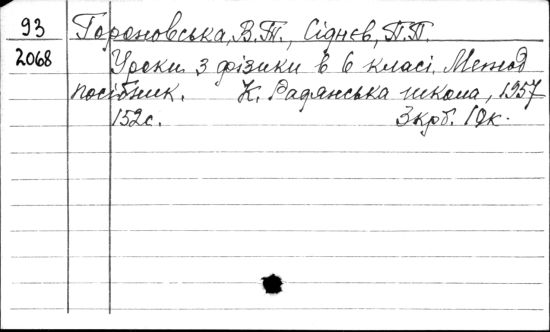 93 Гороновська, В.Т., Сіднєв, П.П.
2068 Уроки з фізики в 6 класі. Метод
посібник. К. Радянська школа, 1957
152с. 3крб. 10к.